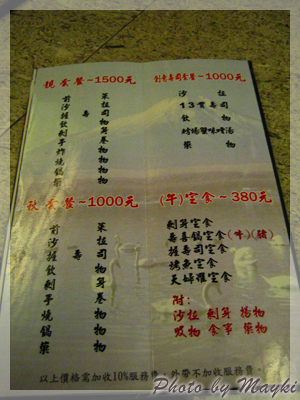 現食餐~1500元
前菜
沙拉
握壽司
飲物
刺身
手卷
炸物
燒物
鍋物
藥物
創意壽司食餐~1000元
沙拉
13貫壽司
飲物
藥物
秋食餐~1000元
前菜
沙拉
握壽司
飲物
刺身
手卷
燒物
鍋物
藥物
(午)定食~380元
刺身定食
壽喜鍋定食(牛)(豬)
握壽司定食
烤魚定食
天婦羅定食
附:
沙拉 刺身 揚物
吸物 食事 藥物
以上價格需加收10%服務費,外帶不加收服務費。
Photo by Mayki